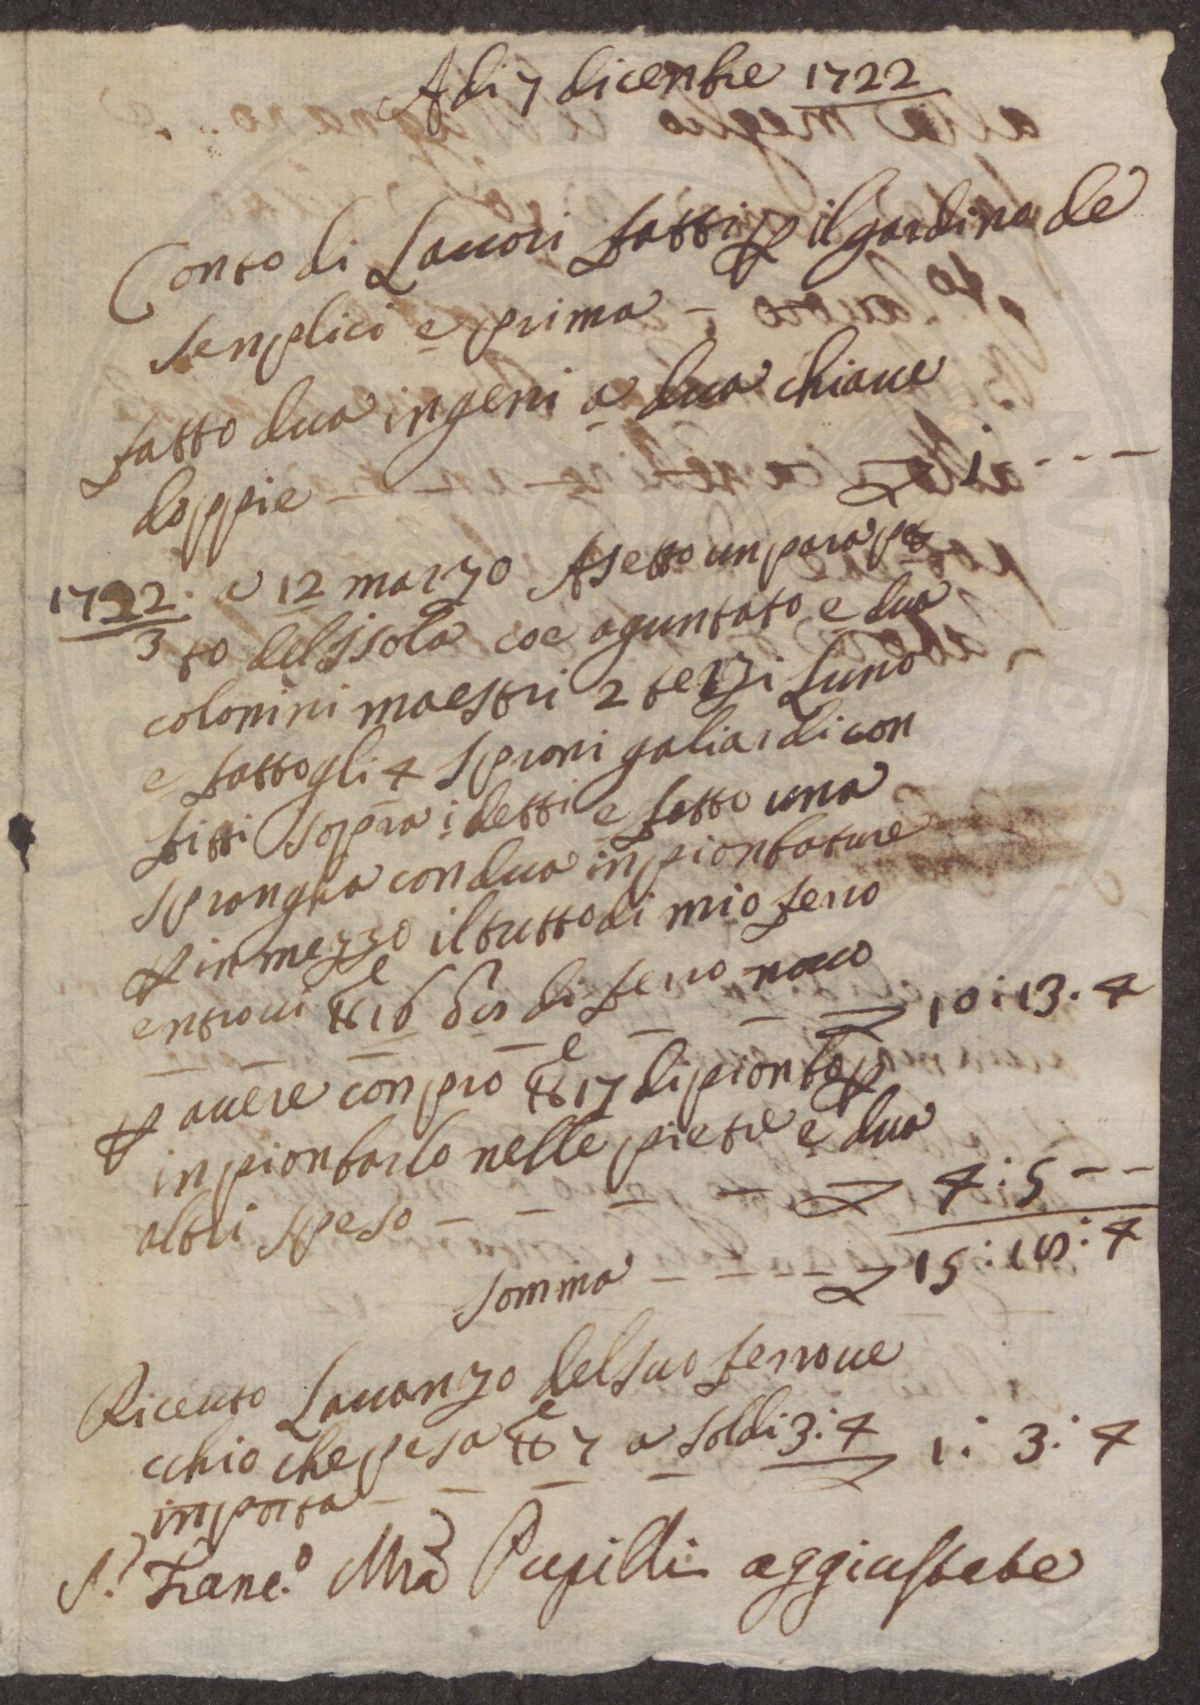 A di 7 dicenbre 1722
Conto di Lauori fatti p il gardino de
senplici e prima -
fatto dua ingeni a dua chiaue
doppie - - - - - 1 - - -
1722/3 a 12 marzo Asetto un para pe
to del Isola coe aguntato e dua
colonini maestri 2 terzi Luno
e fattogli 4 sproni galiardi con
fitti sopra i detti e fatto una
spranga con dua inpionbature
p in mezzo il tutto di mio ferro
entroui lb 16 di ferro nouo
- - - - - - 10 : 13 . 4
p auere conpro lb 17 di pionbo p
inpionbarlo nelle pietre e dua
altri speso - - - - - 4 : 5 - -
somma - - - - 15 : 18 : 4
Riceuto Lauanzo del suo ferro ue
cchio che pesa lb 7 a soldi 3 : 4
inporta - - - - - 1 : 3 : 4
S.r Franc.o Mra Pupilli aggiustate